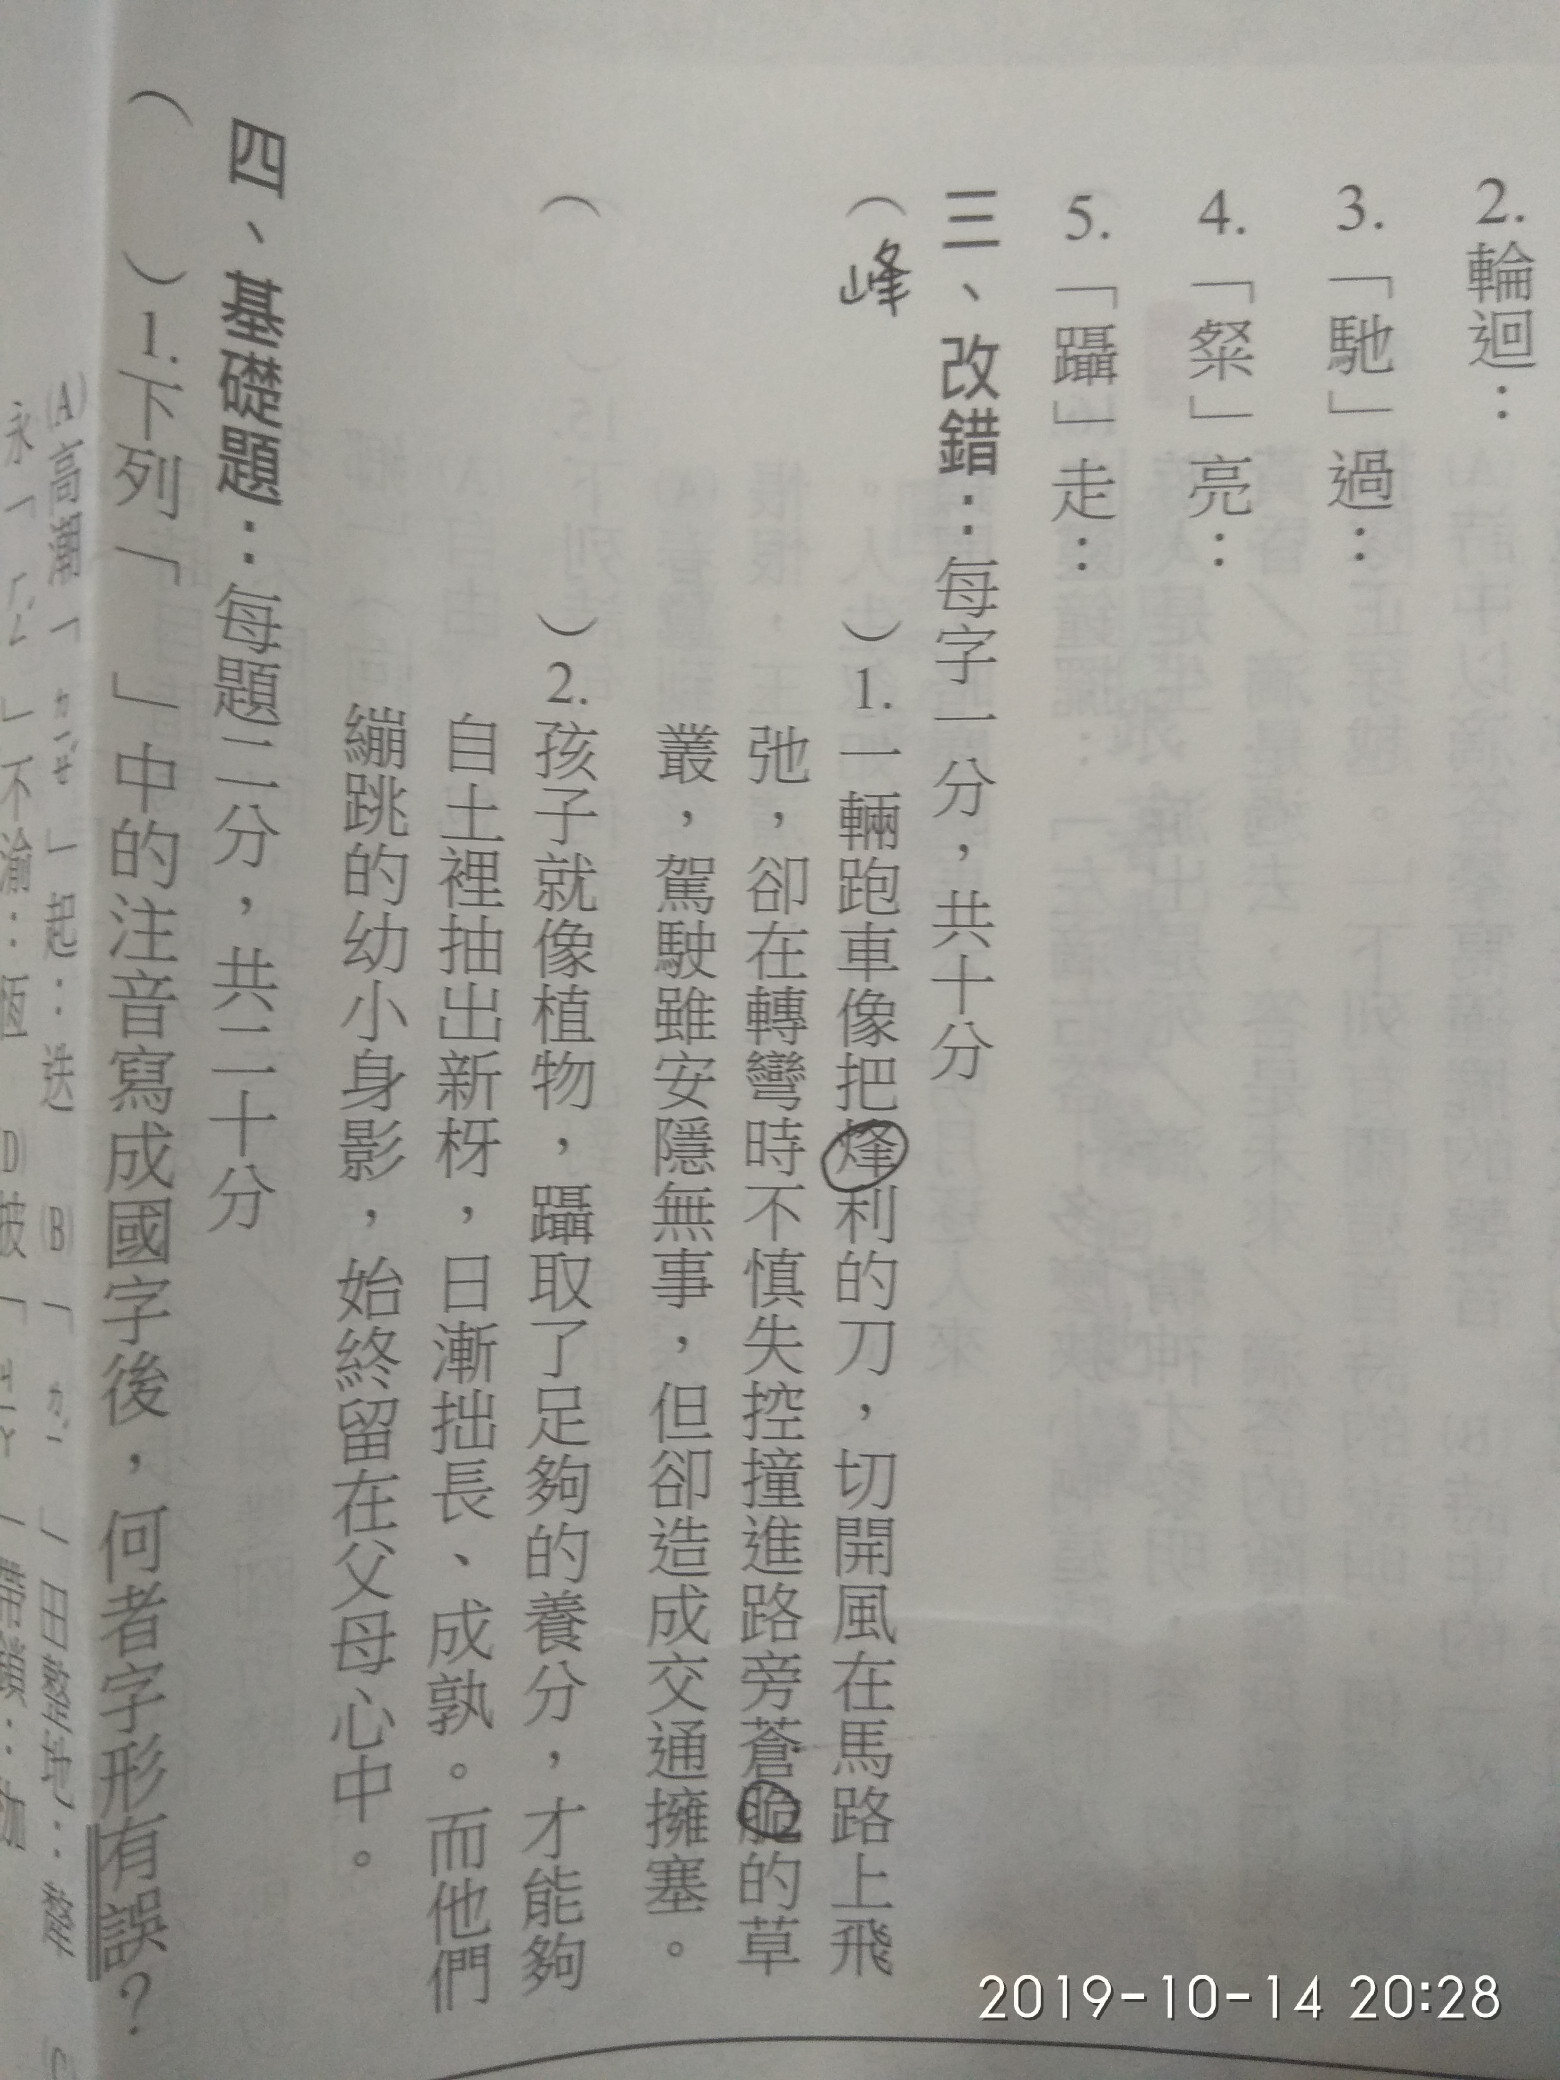 2. 輪迴：
3. 「馳」過：
4. 「粲」亮：
5. 「躡」走：
三、改錯：每字一分，共十分
（峰）1. 一輛跑車像把烽利的刀，切開風在馬路上飛
弛，卻在轉彎時不慎失控撞進路旁蒼脆的草
叢，駕駛雖安隱無事，但卻造成交通擁塞。
（ ）2. 孩子就像植物，躡取了足夠的養分，才能夠
自土裡抽出新枒，日漸拙長、成孰。而他們
繃跳的幼小身影，始終留在父母心中。
四、基礎題：每題二分，共二十分
（ ）1. 下列「 」中的注音寫成國字後，何者字形有誤？
(A)高潮「ㄉㄧㄝˊ」起：迭 (B)「ㄉㄧˊ」
永「ㄏㄥˊ」不渝：恆
2019-10-14 20:28